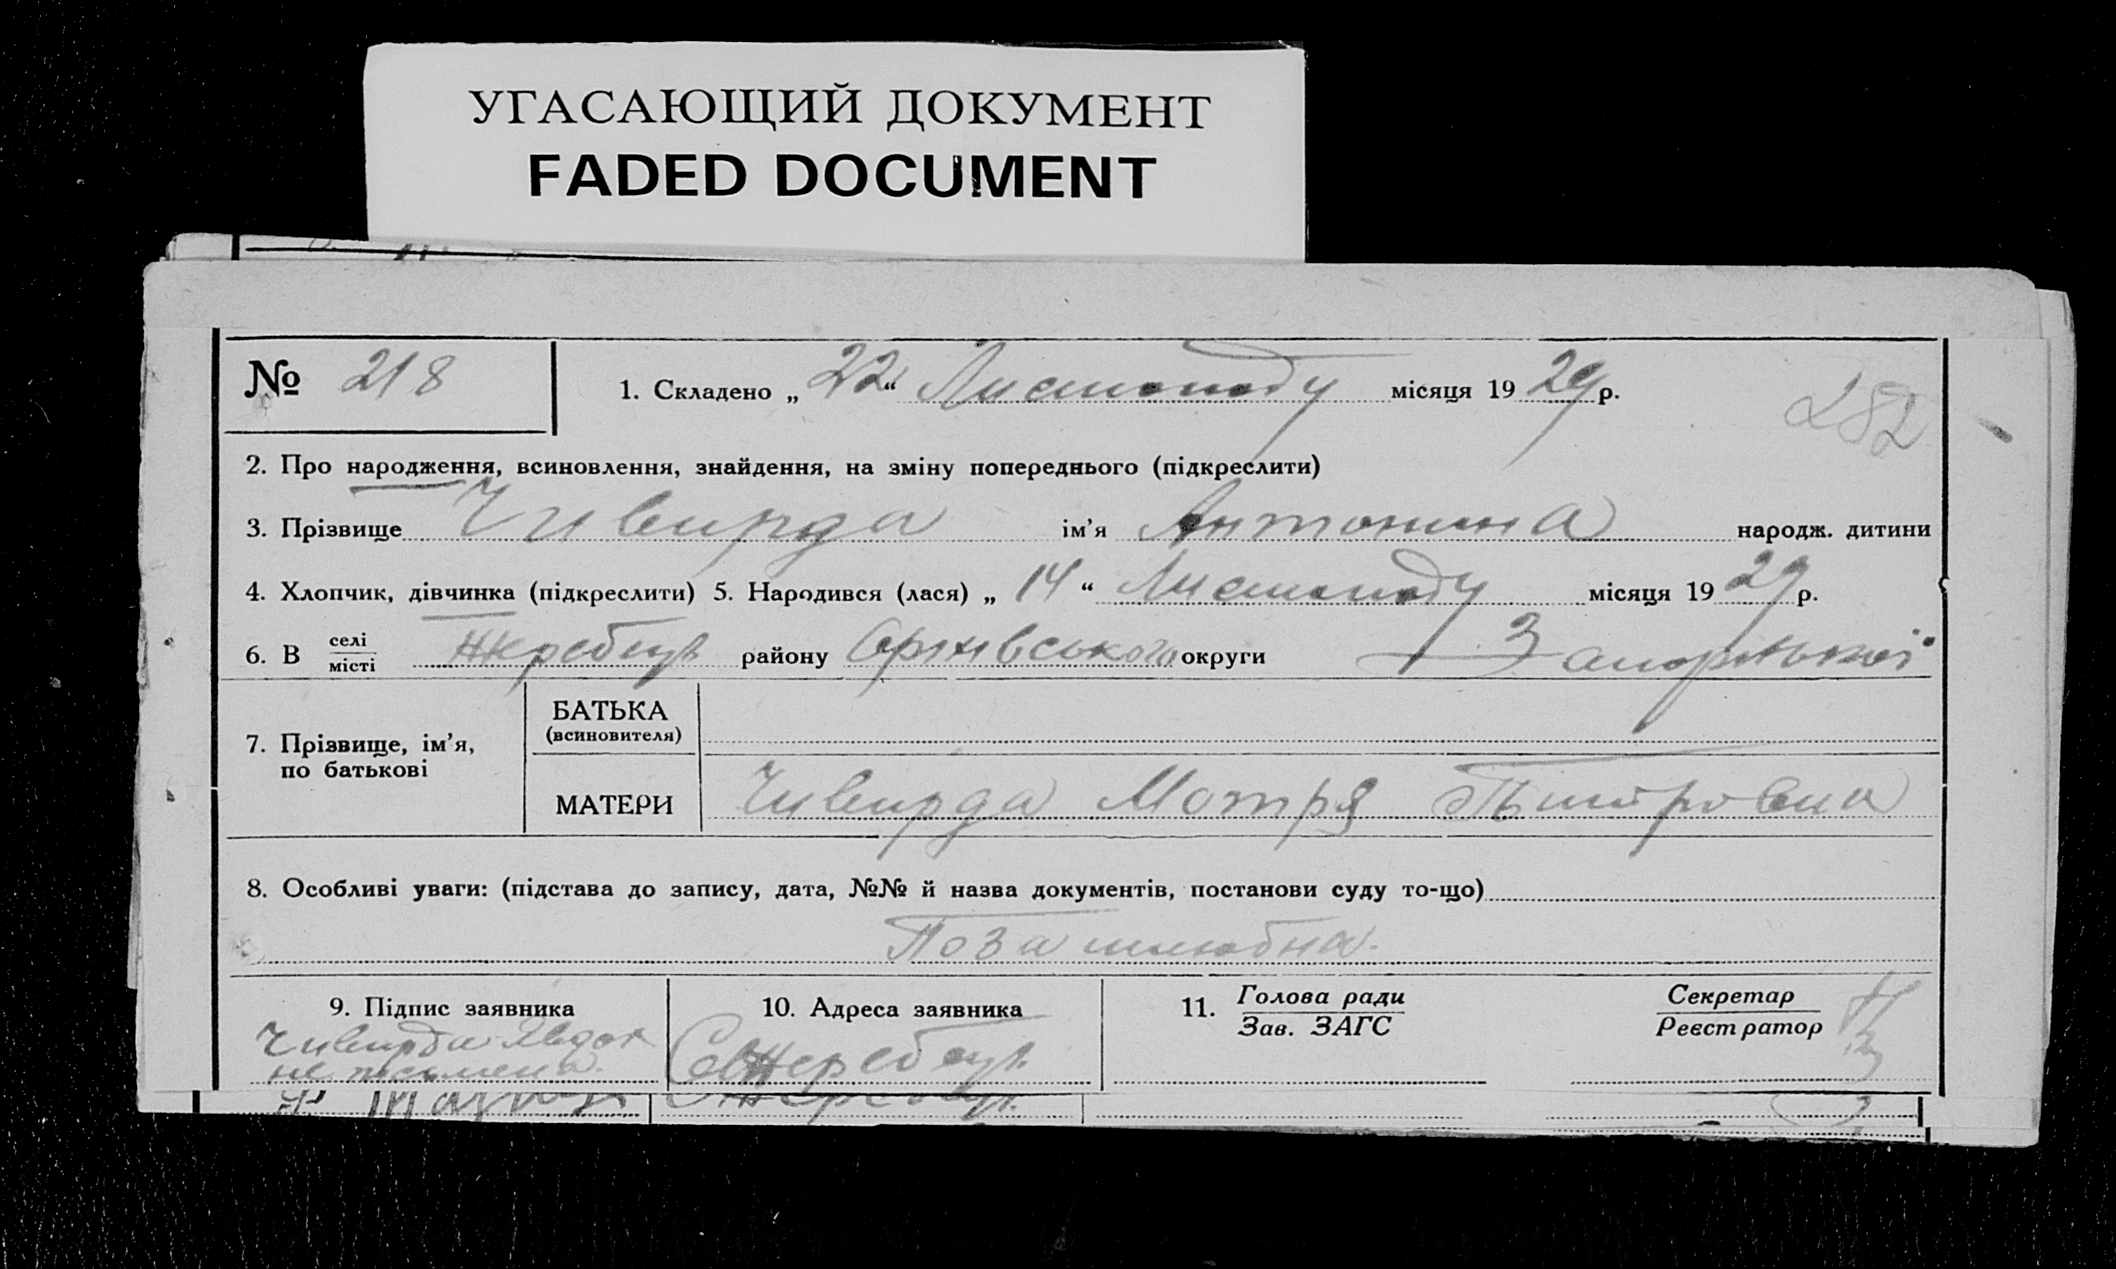 УГАСАЮЩИЙ ДОКУМЕНТ
FADED DOCUMENT
№ 218
1. Складено „ 22 “ Листопаду місяця 19 29 р.
282
2. Про народження, всиновлення, знайдення, на зміну попереднього (підкреслити)
3. Прізвище Чивирда ім’я Антонина народж. дитини
4. Хлопчик, дівчинка (підкреслити) 5. Народився (лася) „ 14 “ Листопаду місяця 19 29 р.
6. В селі місті Жеребець району Оріхівського округи Запорізької
7. Прізвище, ім’я, по батькові
БАТЬКА (всиновителя)
МАТЕРИ Чивирда Мотря
8. Особливі уваги: (підстава до запису, дата, №№ й назва документів, постанови суду то-що)
Позашлюбна.
9. Підпис заявника
Чивирда Явдох
не письмена.
10. Адреса заявника
Жеребець
11. Голова ради
Зав. ЗАГС
Секретар
Реєстратор